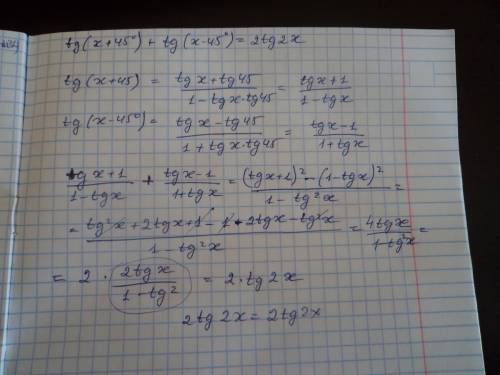 tg(x+45°)+tg(x-45°)=2tg2x
tg(x+45) = (tgx+tg45)/(1-tgx·tg45) = (tgx+1)/(1-tgx)
tg(x-45°) = (tgx-tg45)/(1+tgx·tg45) = (tgx-1)/(1+tgx)
(tgx+1)/(1-tgx) + (tgx-1)/(1+tgx) = ((tgx+1)²-(1-tgx)²)/(1-tg²x) =
= (tg²x+2tgx+1-1+2tgx-tg²x)/(1-tg²x) = 4tgx/(1-tg²x) =
= 2·(2tgx)/(1-tg²) = 2·tg2x
2tg2x=2tg2x